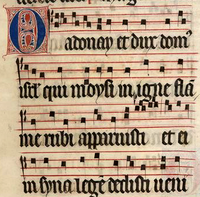 O adonay et dux dom⁹
isr̄l qui moysi in igne flā
me rubi apparuisti et ei
in syna legē dedisti veni